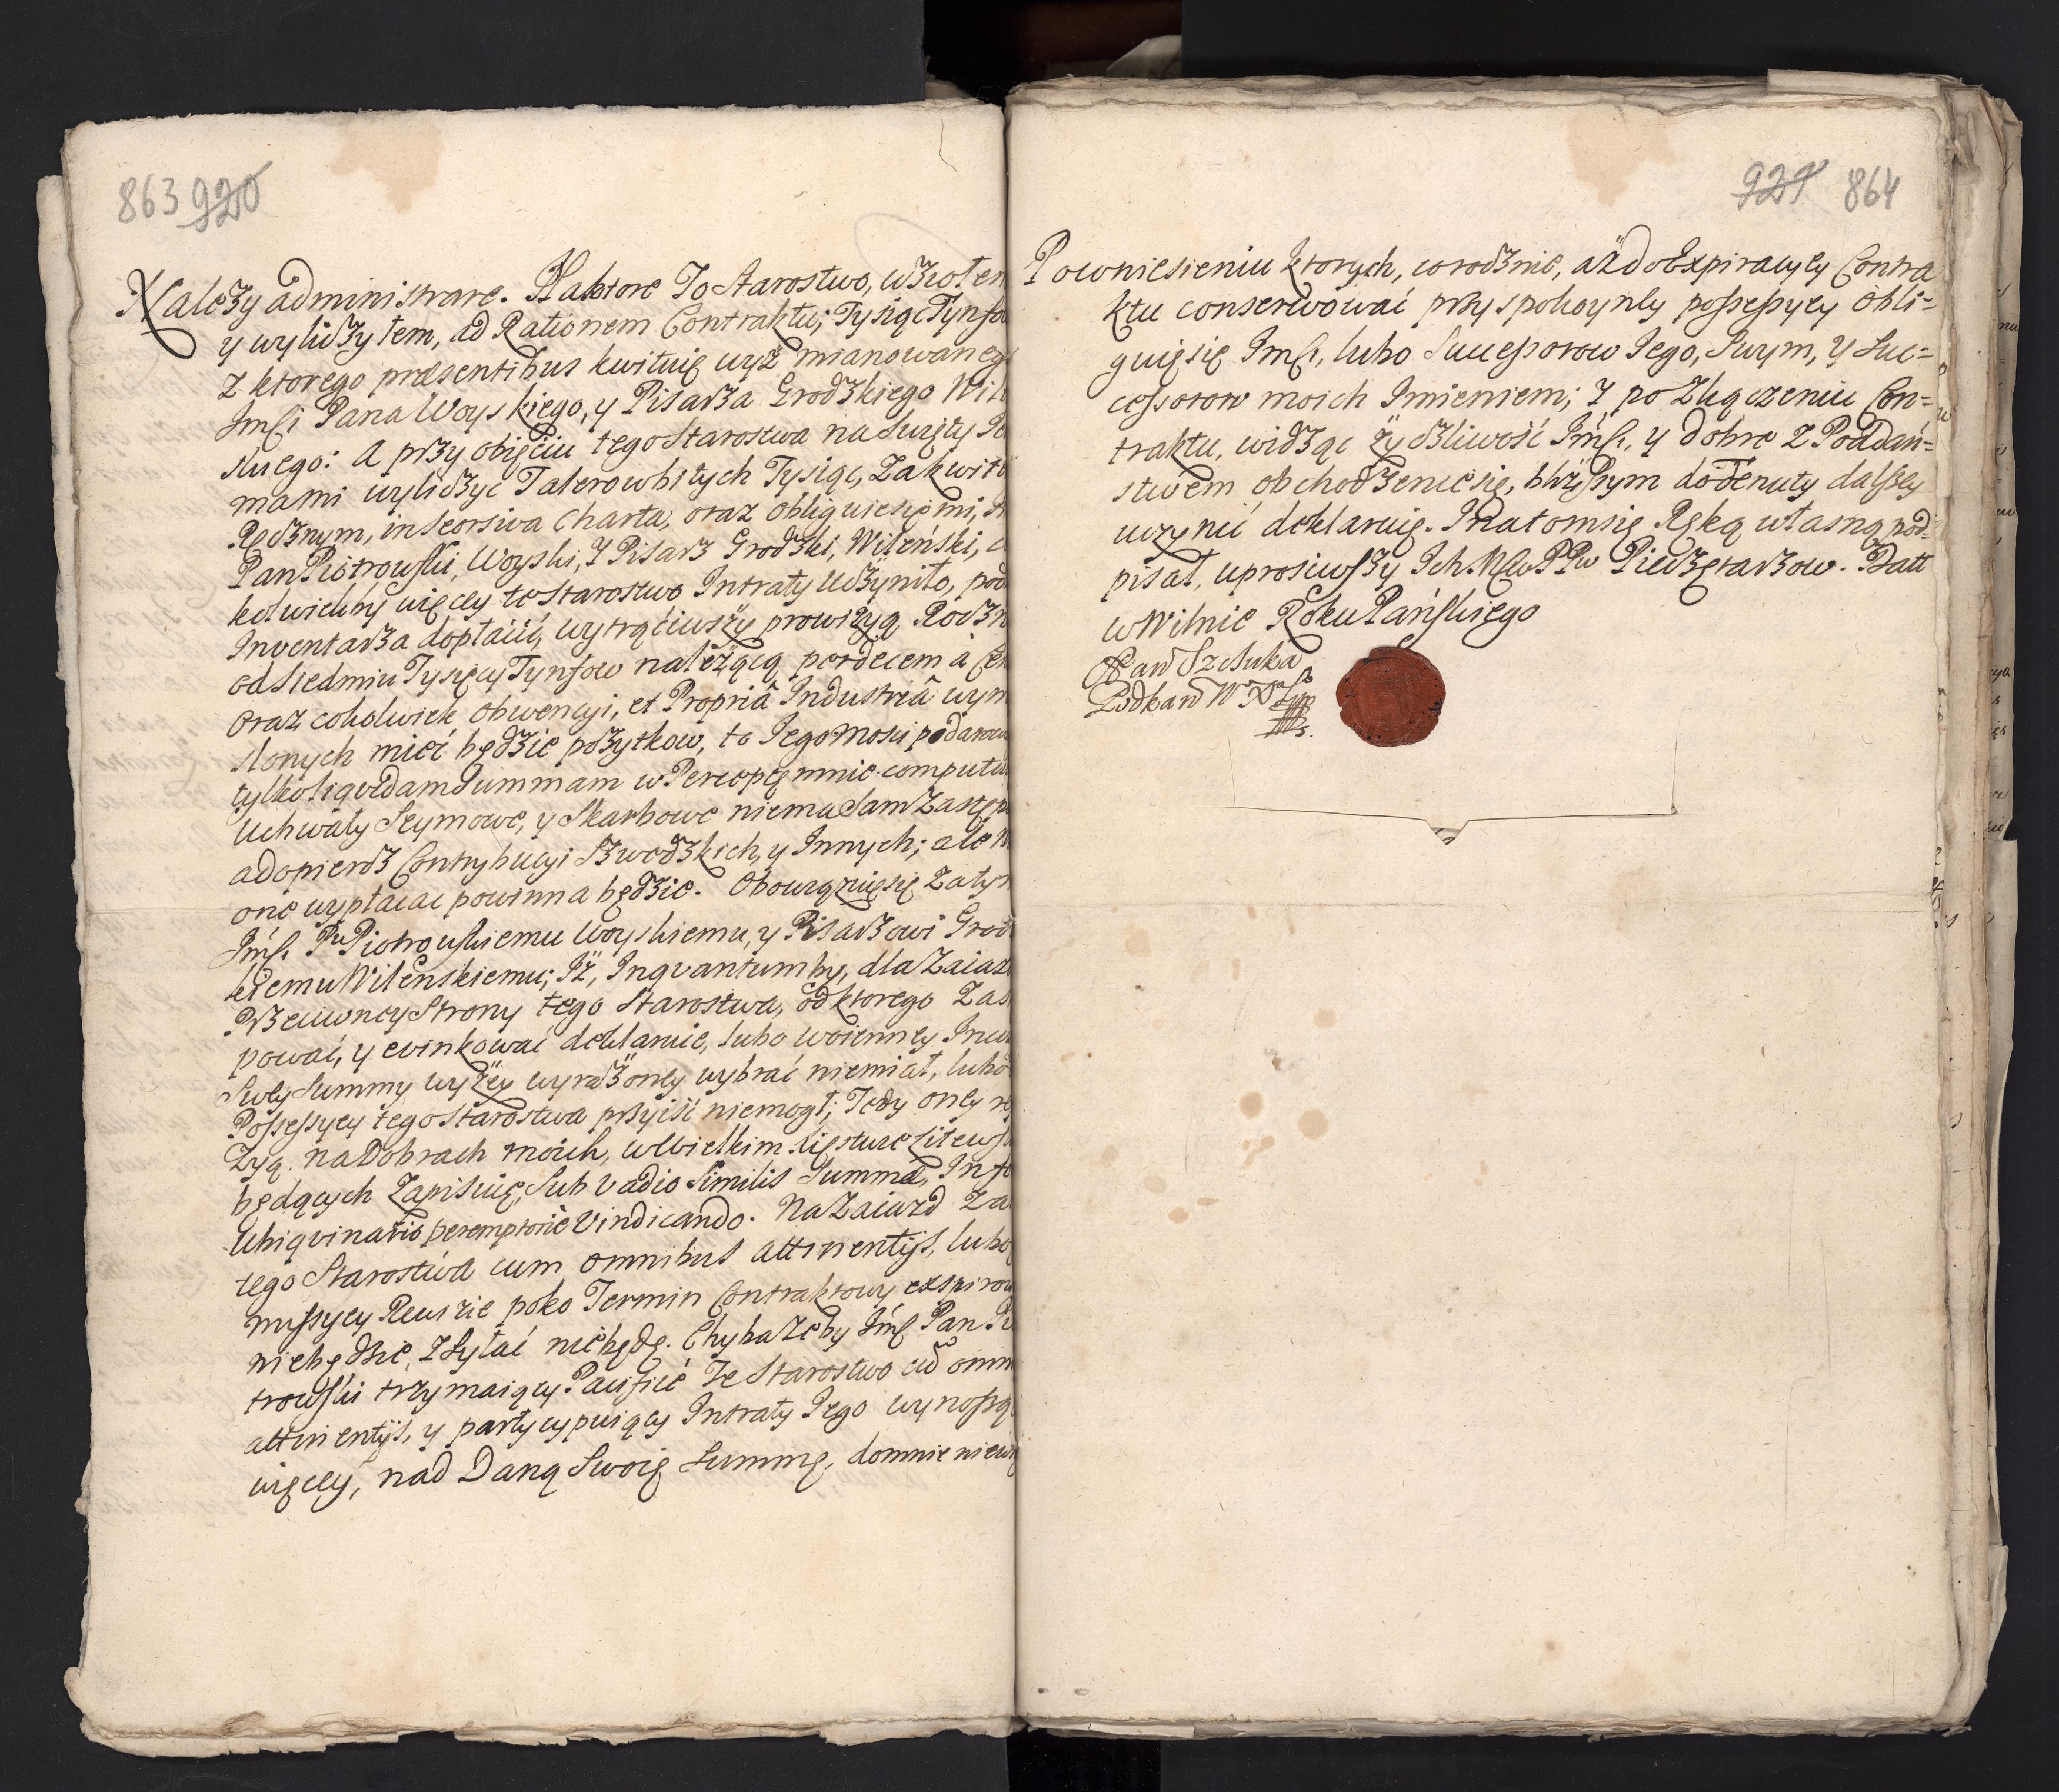 863 920
Należy administrare. Naktore To Starostwo, wziołem
y wyliczyłem, ad Rationem Contraktu; Tysiąc Tynfo
z ktorego præsentibus kwituię wyż mianowaneg
Imści Pana Woyskiego, y Pisarza Grodzkiego Wil
skiego: A przy obięciu tego Starostwa na Swięty
mami wyliczyć Talerow bitych Tysiąc, Zakwit
Ręcznym, in seorsiva Charta, oraz obliguie się mi,
Pan Piotrowski, Woyski, Y Pisarz Grodzki, Wileński,
kolwiekby więcey to Starostwo Intraty uczyniło, pod
Inventarza dopłacić, wytrąciwszy prowizyą Roczn
od Siedmiu Tysięcy Tynfow należącą per decem à Cen
oraz cokolwiek obwencyi, et Propriâ Industriâ wym
slonych mieć będzie pożytkow, to Jego Mosci podarow
tylko liqvidam Summam w Perceptę mnie computu
Uchwały Seymowe, y Skarbowe nie ma Sam Zastęp
adopierz Contrybucyi Szwedzkich, y Innych; ale
one wypłacac powinna będzie. Obowiązuię się Zatym
Imści Pu Piotrowskiemu Woyskiemu, y Pisarzowi Grod
kiemu Wilenskiemu; Iż, Inqvantumby, dla Zaiaz
Przeciwney Strony tego Starostwa, od ktorego Zas
pować, y evinkować deklaruie, lubo woienney Incu
Swey Summy wyżey wyrażoney wybrać niemiał, lubo
Possessyey tego Starostwa przyiść niemogł; Tedy oney
Zyą na Dobrach moich, w Wielkim Xięstwe Litews
będących Zapisuię, Sub Vadio Similis Summæ, In fo
Ubiqvinario peremptorie Vindicando. Na Zaiazd Za
tego Starostwa cum omnibus attinentijs, lubo
missyey Rewizie poko Termin Contraktowy exspirow
niebędzie, Zsyłać niebędę. Chyba Zeby Imść Pan Pi
trowski trzymaiący Pacifice Te Starostwo cu omn
attinentijs, y partycypuiący Intraty Jego wynoszą
więcey, nad Daną Swoię Summę, domnie niew
921 864
Powniesieniu ktorych, corocznie, aż do Expiracyey Contra
ktu conserwować przy spokoyney possessyey obli=
guię się Imści, lubo Successorow Jego, Swym, y Suc=
cessorow moich Imieniem; Y po Zkączeniu Con=
traktu, widząc życzliwość Imści, y dobre z Poddań=
stwem obchodzenie się, bliższym do Tenuty dalszey
uczynić deklaruię. Y Na tom się Ręką własną pod=
pisał, uprosiwszy Ich Mcw PPw Pieczętarzow. Datt
w Wilnie Roku Pańskiego